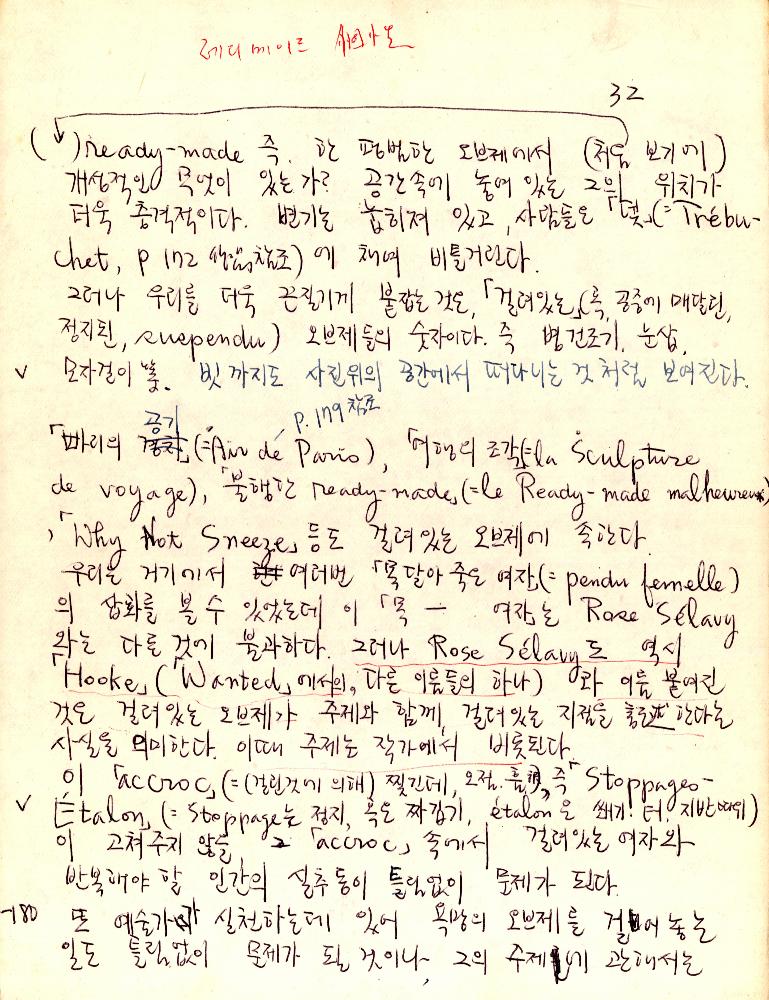 레디메이드
32
( )ready-made 즉. 한 평범한 오브제에서 (처음 보기에)
개성적인 무엇이 있는가? 공간속에 놓여 있는 그의 위치가
더욱 충격적이다. 변기는 눕히져 있고, 사람들은 「덫」(=Trébu-
chet, p 172 참조) 에 채여 비틀거린다.
그러나 우리를 더욱 끈질기게 붙잡는 것은, 「걸려있는」(혹, 공중에 매달린,
정지된, suspendu) 오브제들의 숫자이다. 즉 병건조기, 눈삽,
모자걸이 빗까지도 사진위의 공간에서 떠다니는 것처럼 보여진다.
공기 p.179 참조
「빠리의 (=Air de Paris), 「여행의 조각」(=la Sculpture
de voyage), 「불행한 ready-made」(=le Ready-made malheureux)
, 「Why Not Sneeze」 등도 걸려있는 오브제에 속한다.
우리는 거기에서 여러번 「목달아 죽은 여자」(= pendu femelle)
의 삽화를 볼 수 있었는데 이 「목 — 여자」는 Rose Sélavy
와는 다른 것에 불과하다. 그러나 Rose Sélavy도 역시
「Hooke」 (「Wanted」에서의, 다른 이름들의 하나) 와 이름 붙여진
것은 걸려있는 오브제가 주제와 함께, 걸려있는 지점을 한다는
사실을 의미한다. 이때 주제는 작가에서 비롯된다.
이 「accroc」(=(걸린것에 의해) 찢긴데, 오점, 즉 「Stoppages-
Étalon」(= Stoppage는 정지, 혹은 짜깁기, étalon은 쐐기! 터, 지반따위)
이 고쳐주지 않을 그 「accroc」 속에서 걸려있는 여자와
반복해야 할 인간의 실추 등이 틀림없이 문제가 된다.
-180 또 예술가가 실천하는데 있어 욕망의 오브제를 걸어 놓는
일도 틀림없이 문제가 될 것이나, 그의 주제에 관해서는